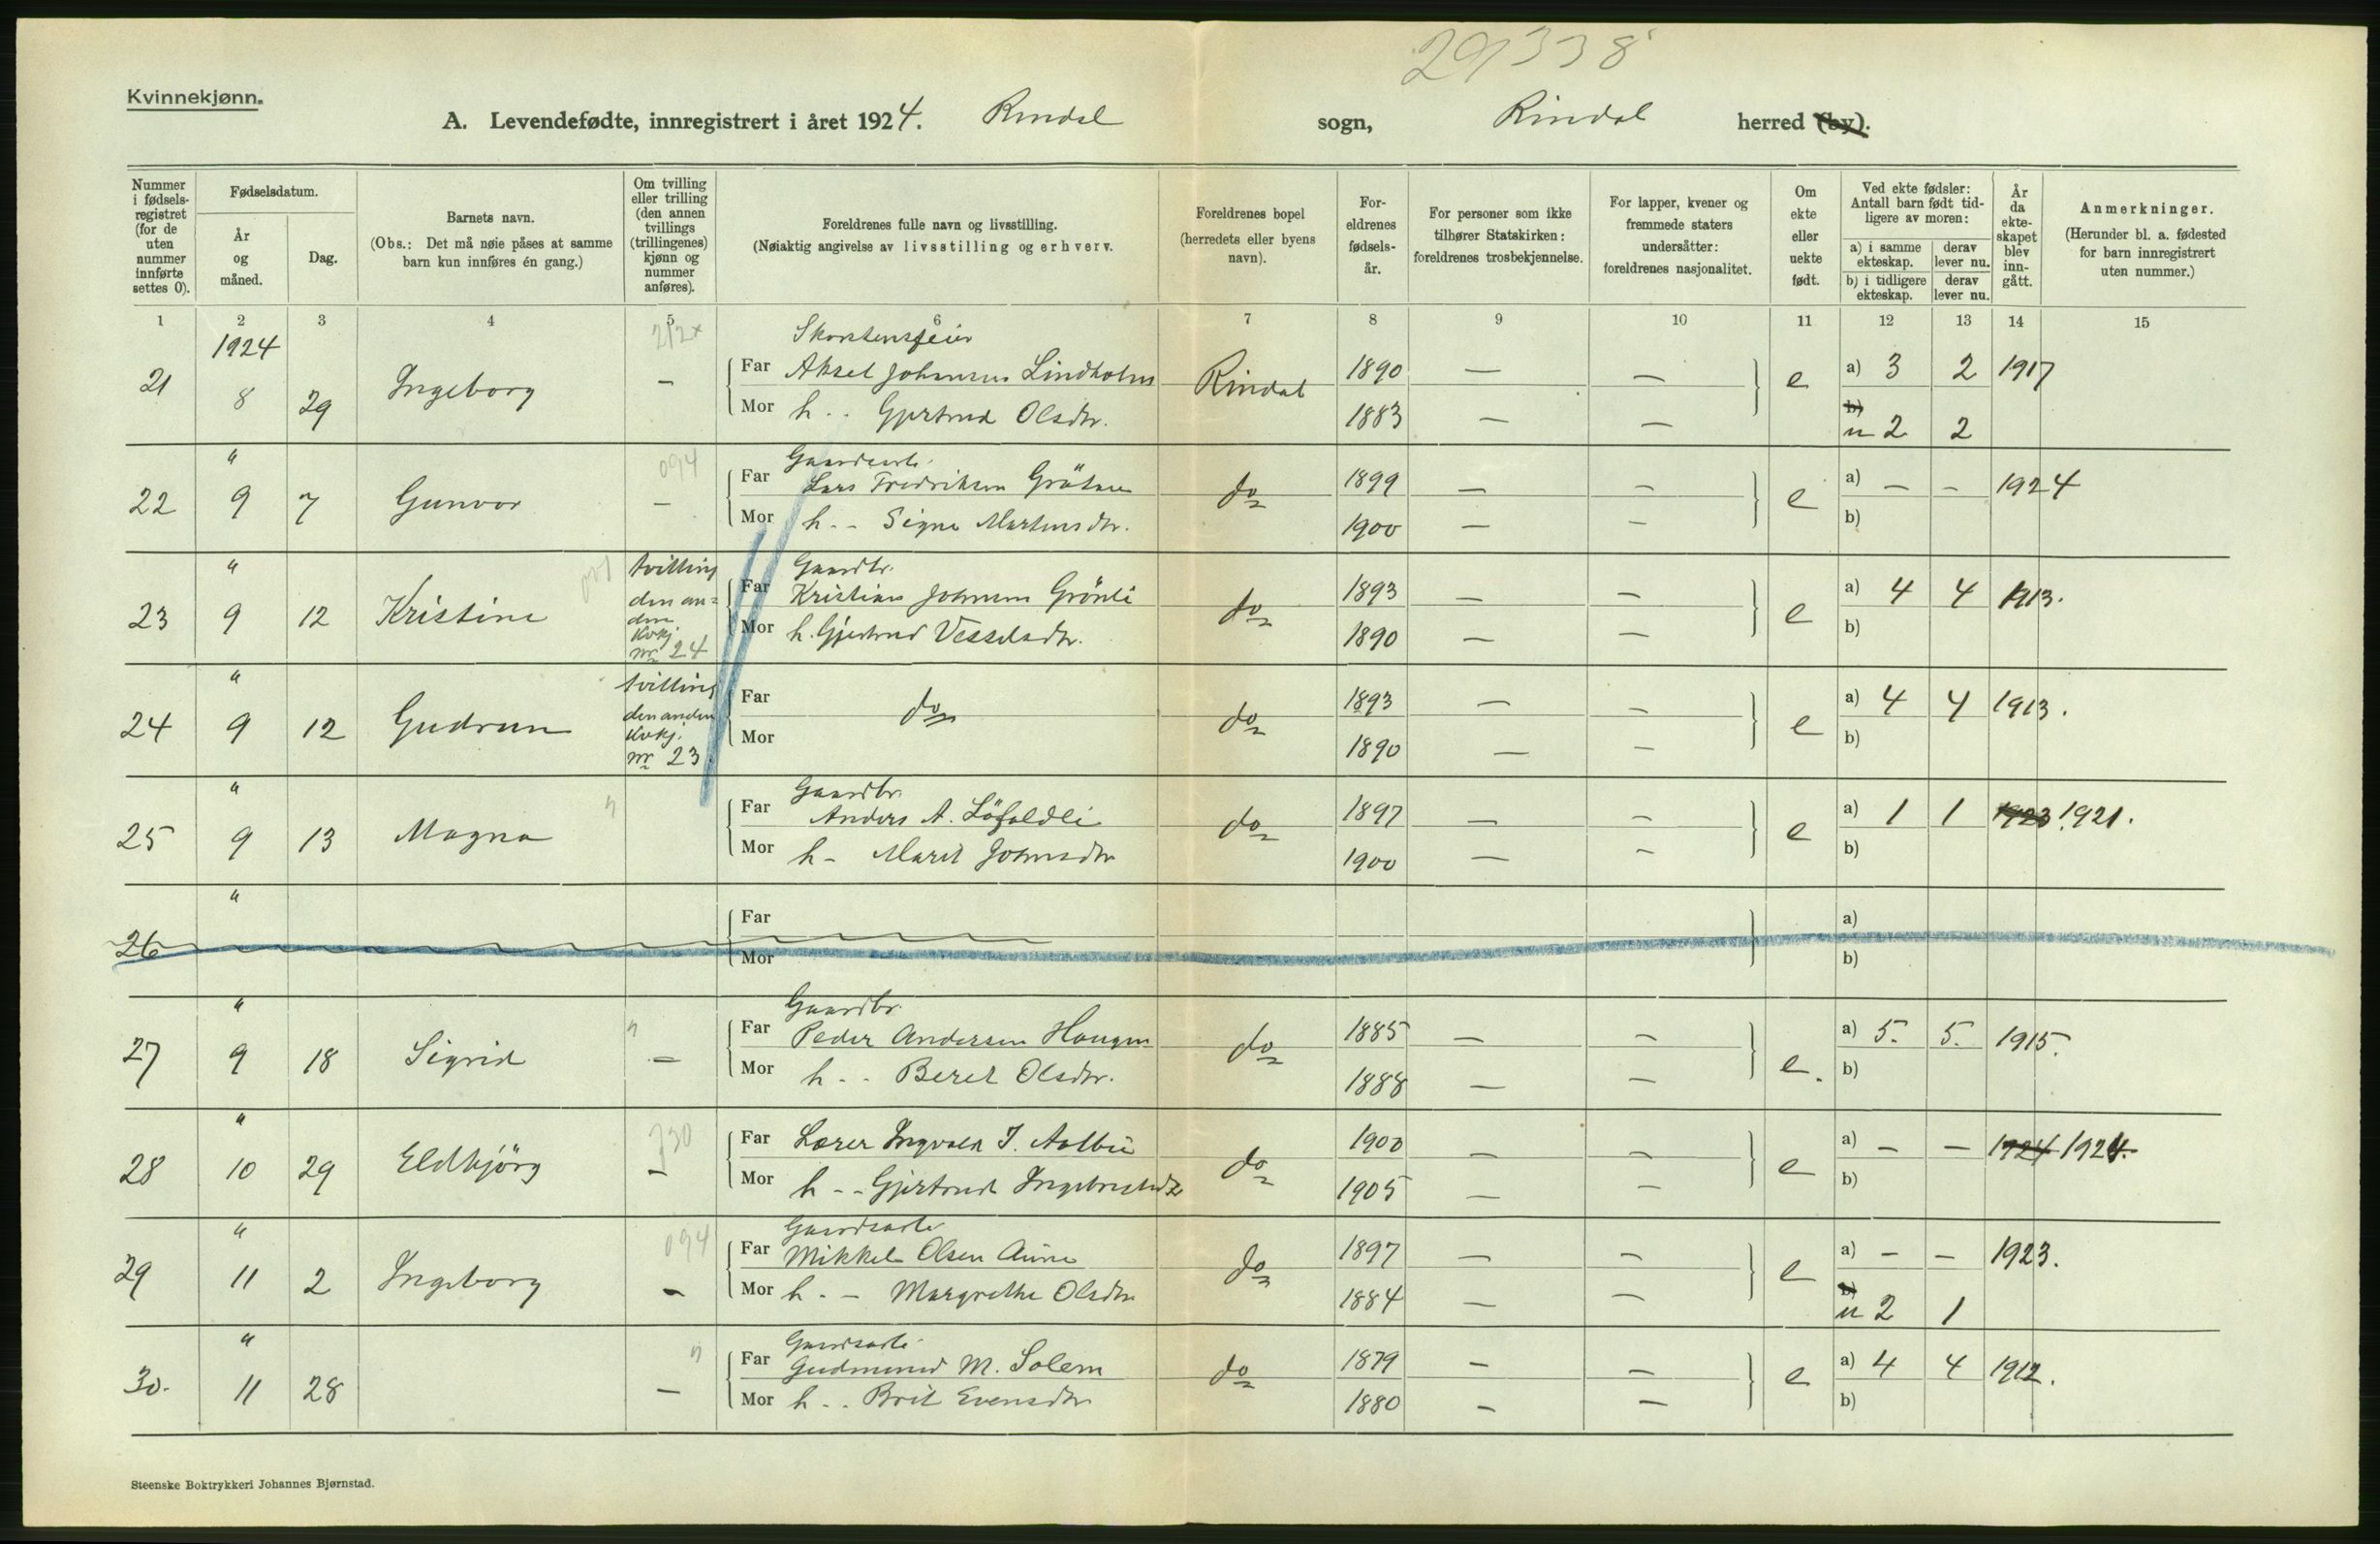 29338
Kvinnekjønn.
A. Levendefødte, innregistrert i året 1924. Rindal sogn, Rindal herred (by).
Nummer i fødselsregistret (for de uten nummer innførte settes 0).
Fødselsdatum.
År og måned.
Dag.
Barnets navn.
(Obs.: Det må nøie påses at samme barn kun innføres én gang.)
Om tvilling eller trilling (den annen tvillings (trillingenes) kjønn og nummer anføres).
Foreldrenes fulle navn og livsstilling.
(Nøiaktig angivelse av livsstilling og erhverv.
Foreldrenes bopel (herredets eller byens navn).
Foreldrenes fødselsår.
For personer som ikke tilhører Statskirken: foreldrenes trosbekjennelse.
For lapper, kvener og fremmede staters undersåtter: foreldrenes nasjonalitet.
Om ekte eller uekte født.
Ved ekte fødsler: Antall barn født tidligere av moren:
a) i samme ekteskap. derav lever nu.
b) i tidligere ekteskap. derav lever nu.
År da ekteskapet blev inngått.
Anmerkninger.
(Herunder bl. a. fødested for barn innregistrert uten nummer.)
1 2 3 4 5 6 7 8 9 10 11 12 13 14 15
1924 212x Skorstensfeier
21 8 29 Ingeborg — Far Aksel Johansen Lindholm Rindal 1890 — — e a) 3 2 1917
Mor h. - Gjertrud Olsdtr. 1883 — — b) u 2 2
" 094 Gaardsarb.
22 9 7 Gunvor — Far Lars Fredriksen Grötan do 1899 — — e a) — — 1924
Mor h. - Signe Martinsdtr. 1900 — — b)
" tvilling Gaardbr.
23 9 12 Kristine den anden kvkj. nr 24 Far Kristian Johnsen Grönli do 1893 — — e a) 4 4 1913.
Mor h. Gjertrud Vesselsdtr. 1890 — — b)
" tvilling
24 9 12 Gudrun den anden kvkj. nr 23 Far do do 1893 — — e a) 4 4 1913.
Mor 1890 — — b)
" Gaardbr.
25 9 13 Magna Far Anders A. Löfaldli do 1897 — — e a) 1 1 1923 1921.
Mor h - Marit Johnsdtr 1900 — — b)
"
26 Far a)
Mor b)
" Gaardbr.
27 9 18 Sigrid — Far Peder Andersen Haugen do 1885 — — e. a) 5. 5. 1915.
Mor h. - Beret Olsdtr. 1888 — — b)
" 330
28 10 29 Eldbjörg — Far Lærer Ingvald J. Aalbu do 1900 — — e a) — — 1924 1924.
Mor h - - Gjertrud Ingebrigtsdtr 1905 — — b)
" 094 Gaardsarb.
29 11 2 Ingeborg - Far Mikkel Olsen Aune do 1897 — — e a) — — 1923.
Mor h. - Margrethe Olsdtr 1884 — — b) u 2 1
" Gaardsarb.
30. 11 28 — Far Gudmund M. Solem do 1879 — — e a) 4 4 1912.
Mor h. - Brit Evensdtr 1880 — — b)
Steenske Boktrykkeri Johannes Bjørnstad.